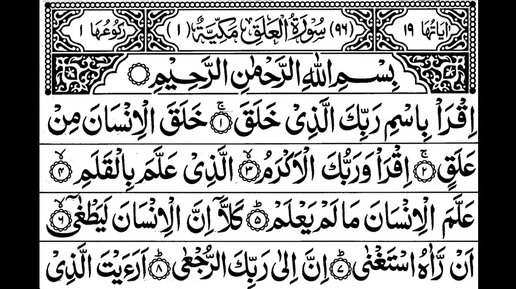 اٰيَاتُهَا ١٩ (٩٦) سُوْرَةُ الْعَلَقِ مَكِّيَّةٌ (١) رُكُوْعُهَا ١
بِسْمِ اللّٰهِ الرَّحْمٰنِ الرَّحِيْمِ ۝
اِقْرَاْ بِاسْمِ رَبِّكَ الَّذِىْ خَلَقَ ۚ‏﴿۱﴾ خَلَقَ الْاِنْسَانَ مِنْ
عَلَقٍ‌ۚ‏﴿۲﴾ اِقْرَاْ وَرَبُّكَ الْاَكْرَمُۙ‏﴿۳﴾ الَّذِىْ عَلَّمَ بِالْقَلَمِۙ‏﴿۴﴾
عَلَّمَ الْاِنْسَانَ مَا لَمْ يَعْلَمْؕ‏﴿۵﴾ كَلَّاۤ اِنَّ الْاِنْسَانَ لَيَطْغٰٓىۙ‏﴿۶﴾
اَنْ رَّاٰهُ اسْتَغْنٰىؕ‏﴿۷﴾ اِنَّ اِلٰى رَبِّكَ الرُّجْعٰىؕ‏﴿۸﴾ اَرَءَيْتَ الَّذِىْ